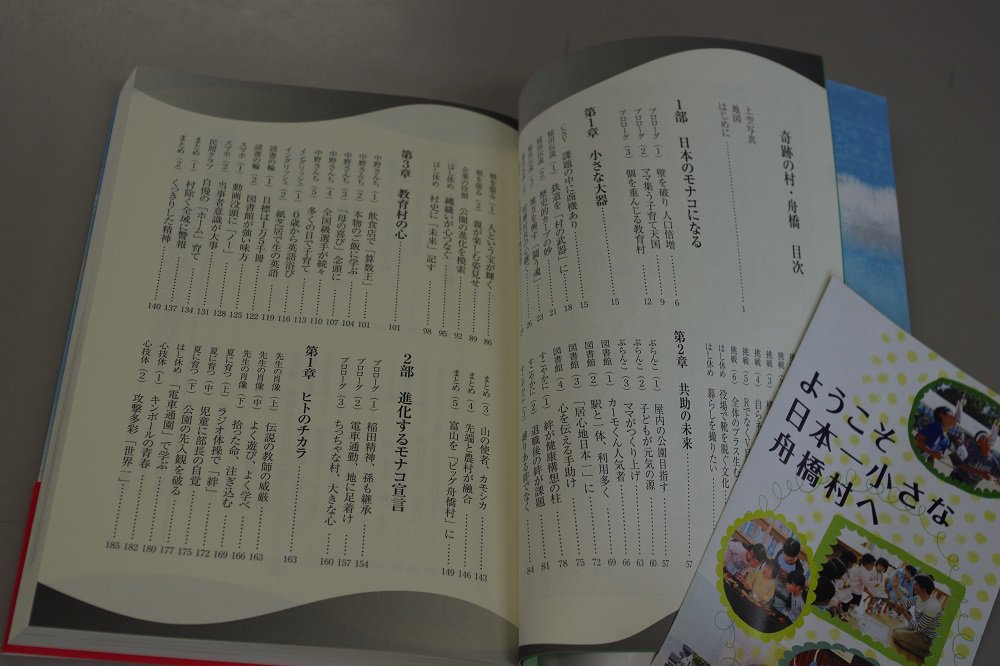 奇跡の村・舟橋　目次
上空写真
地図
はじめに 1
1部　日本のモナコになる
プロローグ（1）　壁を破り　人口倍増 6
プロローグ（2）　ママ集う子育て天国 9
プロローグ（3）　個を重んじる教育村 12
第1章　小さな大器 15
CSV　課題の中に商機あり 15
稲田伝説（1）　鉄道を「村の武器」に 18
第2章　共助の未来 57
ぶらんこ（1）　屋内の公園目指す 57
ぶらんこ（2）　子どもが元気の源 60
ぶらんこ（3）　ママがつくり上げ 63
図書館（1）　カモーくん人気者 66
図書館（2）　駅と一体、利用多く 69
図書館（3）　「居心地日本一」に 72
図書館（4）　心を伝える手助け 75
すこやかに（1）　絆が健康構想の柱 78
すこやかに（2）　退職後の絆が課題 81
はし休め　役場で靴を脱ぐ文化
暮らしを撮りたい
（1）　人という宝が輝く 86
（2）　親が楽しむ姿見せ 89
公園の進化を模索 92
はし休め　縄跳びが心つなぐ 95
はし休め　村史に「未来」記す 98
第3章　教育村の心 101
中野さんち（1）　飲食店で「算数王」 101
中野さんち（2）　本物のご飯に学ぶ 104
中野さんち（3）　「母の喜び」念頭に 107
中野さんち（4）　全国級選手が続々 110
中野さんち（5）　多くの目で子育て 113
イングリッシュ（1）　0歳から英語浴び 116
イングリッシュ（2）　紙芝居で生の英語 119
読書の輪（1）　目標は1万5千冊 122
読書の輪（2）　図書館が強い味方 125
スマホ（1）　動画没頭に「ノー」 128
スマホ（2）　当事者意識が大事 131
民間クラブ　自慢の「ホーム」育て 134
まとめ（1）　村除く全域に警報 137
まとめ（2）　くっきりした精神 140
まとめ（3）　山の使者、カモシカ 143
まとめ（4）　先端と農村が融合 146
まとめ（5）　富山を「ビッグ舟橋村」に 149
2部　進化するモナコ宣言
プロローグ（1）　稲田精神、孫も継承 154
プロローグ（2）　電車通勤、地に足着け 157
プロローグ（3）　ちっちゃな村、大きな心 160
第1章　ヒトのチカラ 163
先生の肖像（上）　伝説の教師の威厳 163
先生の肖像（中）　よく遊び、よく学べ 166
先生の肖像（下）　拾った命、注ぎ込む 169
夏に育つ（上）　ラジオ体操で「絆」 172
夏に育つ（中）　児童に部長の自覚 175
夏に育つ（下）　公園の先入観を破る 177
はし休め　「電車通園」で学ぶ 180
心技体（1）　キンボールの青春 182
心技体（2）　攻撃多彩「世界一」 185
ようこそ
日本一小さな
舟橋村へ